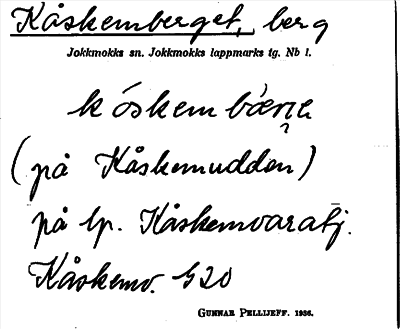 Kåskemberget, berg
Jokkmokks sn. Jokkmokks lappmarks tg. Nb l.
kóskem
(på Kåskemudden)
på lp. Kåskemvaratj.
Kåskemv. G20
GUNNAR PELLIJEFF. 1936.